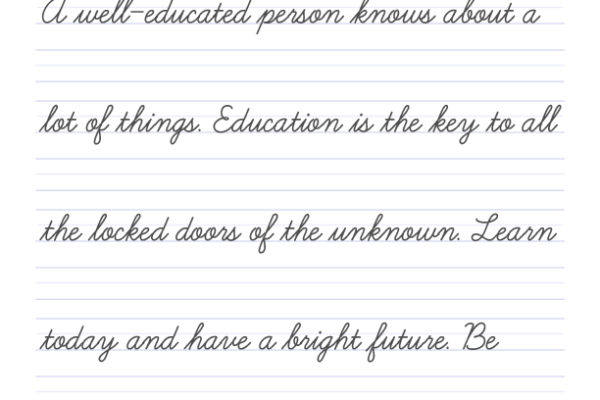 A well-educated person knows about a
lot of things. Education is the key to all
the locked doors of the unknown. Learn
today and have a bright future. Be